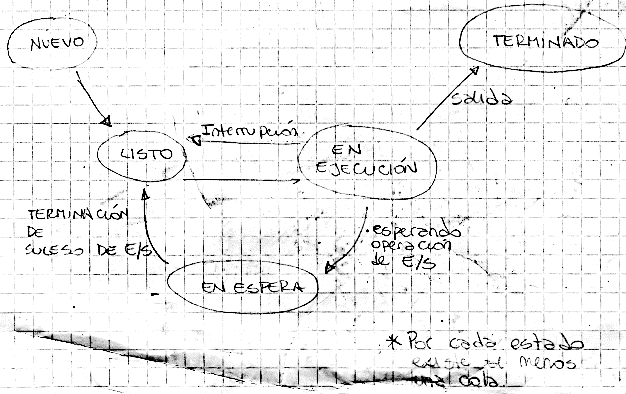 NUEVO
TERMINADO
salida
Interrupción
LISTO
EN
EJECUCIÓN
TERMINACIÓN
DE
SUCESO DE E/S
esperando
operación
de E/S
EN ESPERA
* Por cada estado
existe al menos
una cola